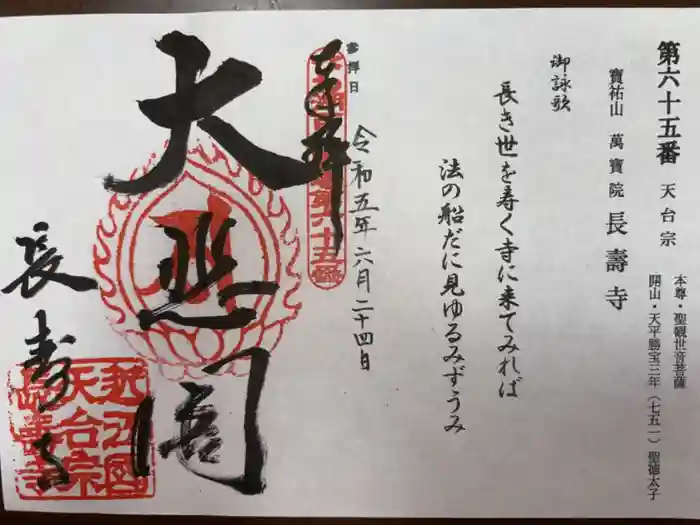 第六十五番 天台宗
本尊・聖観世音菩薩
開山・天平勝宝三年（七五一）聖徳太子
寶祐山 萬寶院 長壽寺
御詠歌
長き世を寿く寺に来てみれば
法の船だに見ゆるみずうみ
参拝日
令和五年六月二十四日
奉拝
大悲閣
長寿寺
天台宗